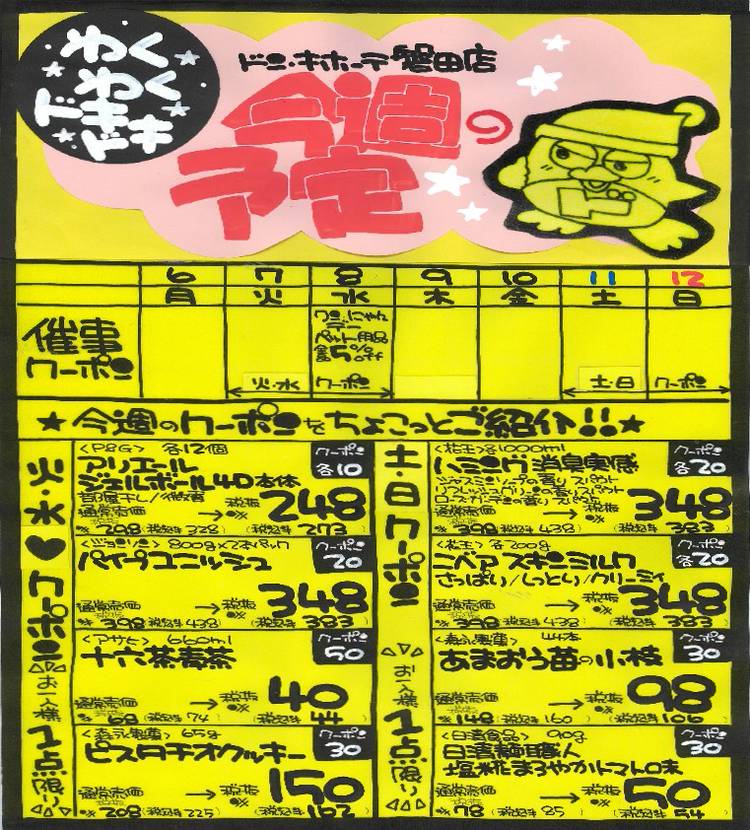 わく
わく
ドキ
ドキ
ドン・キホーテ磐田店
今週の
予定
6 7 8 9 10 11 12
月 火 水 木 金 土 日
催事
クーポン
ワン・にゃん
デー
ペット用品
5%off
火・水 クーポン
土・日 クーポン
★今週のクーポンをちょこっとご紹介!!★
火・水♥クーポン
お一人様1点限り
<P&G> 各12個
クーポン
各10
アリエール
ジェルボール4D本体
通常売価
税抜
→
248
298 (税込 328) (税込 273)
<ジョンソン> 800g×2本パック
クーポン
20
パイプユニッシュ
通常売価
税抜
→
348
398 (税込 438) (税込 383)
<アサヒ> 660ml
クーポン
50
十六茶麦茶
通常売価
税抜
→
40
68 (税込 74) (税込 44)
<森永製菓> 65g
クーポン
30
ピスタチオクッキー
通常売価
税抜
→
150
208 (税込 225) (税込 162)
土・日クーポン
お一人様1点限り
<花王> 各1000ml
クーポン
各20
ハミング消臭実感
ジャスミンソープの香りスパウト
リフレッシュグリーンの香りスパウト
ローズガーデンの香りスパウト
通常売価
税抜
→
348
398 (税込 438) (税込 383)
<花王> 各200g
クーポン
各20
ニベア スキンミルク
さっぱり/しっとり/クリーミィ
通常売価
税抜
→
348
398 (税込 438) (税込 383)
<森永製菓> 44本
クーポン
30
あまおう苺の小枝
通常売価
税抜
→
98
148 (税込 160) (税込 106)
<日清食品> 90g
クーポン
30
日清麺職人
塩糀まろやかトマト味
通常売価
税抜
→
50
78 (税込 85) (税込 54)